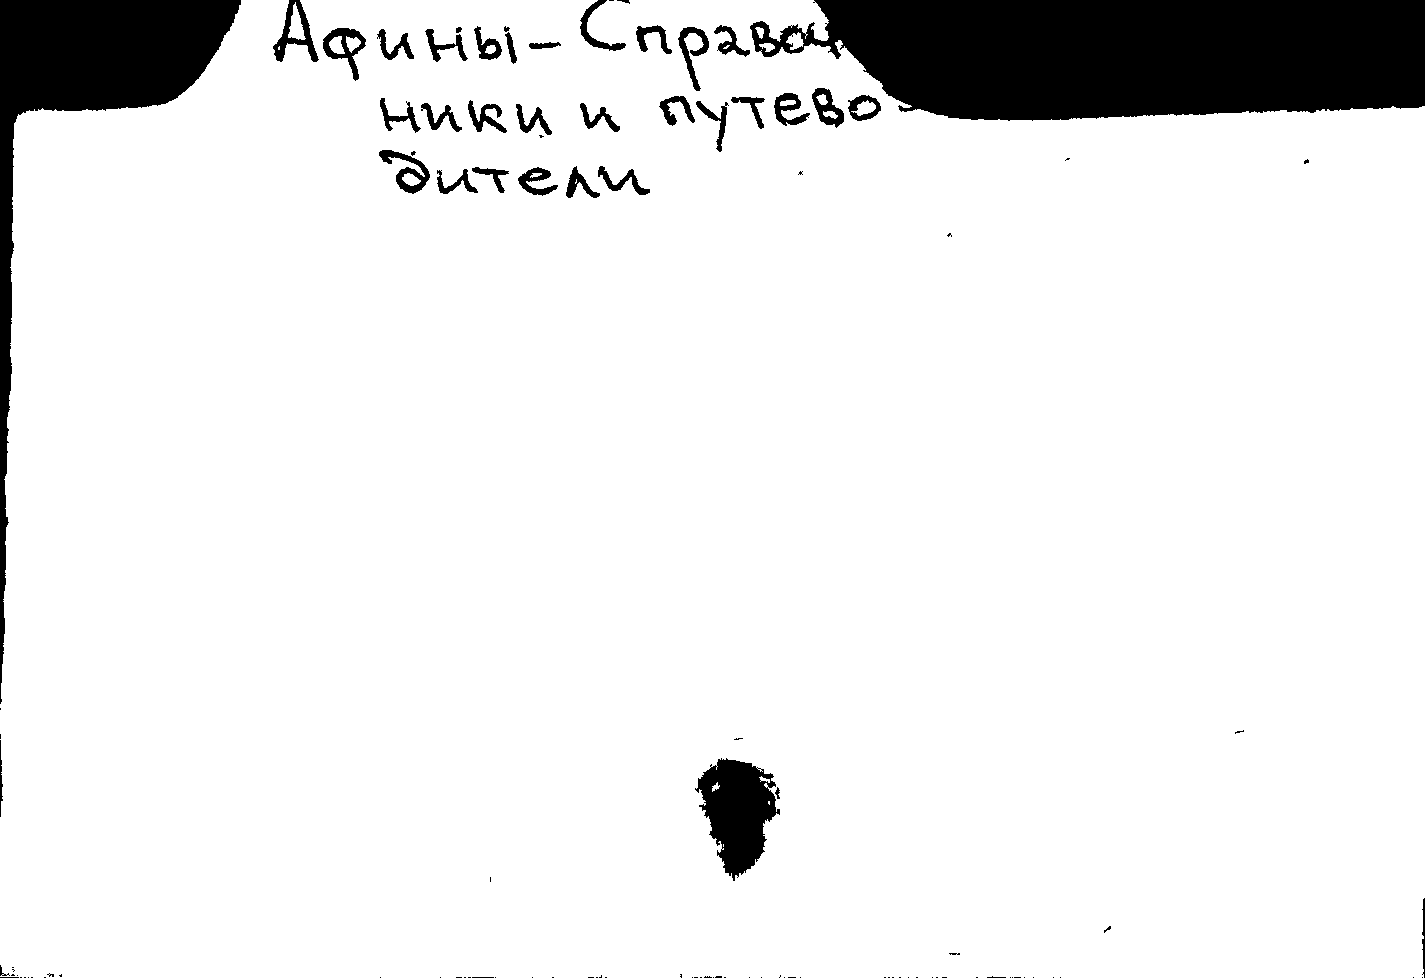 Афины – Справоч
ники и путево-
дители